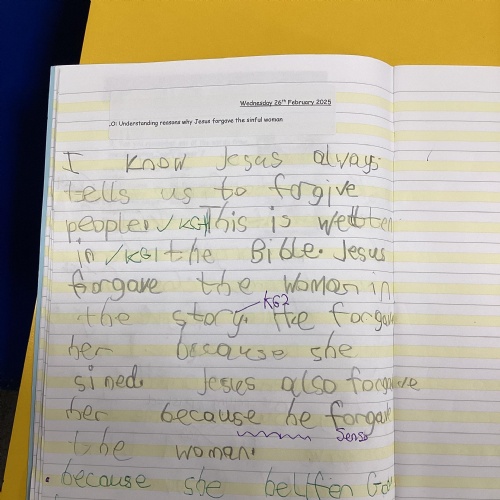 Wednesday 26th February 2025
.O: Understanding reasons why Jesus forgave the sinful woman
I know Jesus always
tells us to forgive
people. ✓KG1 This is wetten
in ✓KG1 the Bible. Jesus
forgave the woman in
the story. KG2 He forgave
her because she
sined. Jesus also forgave
her because he forgave
Sense
the woman.
because she belifen God